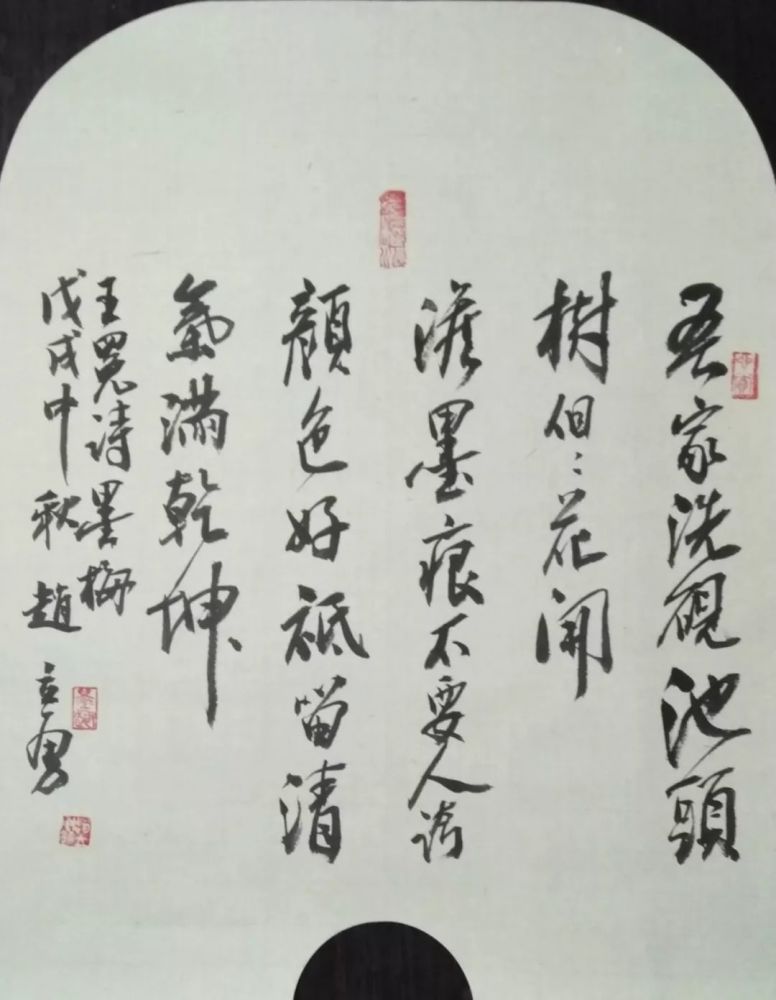 吾家洗硯池頭
樹個〻花開
澹墨痕不要人誇
顏色好祗留清
氣滿乾坤
王冕詩墨梅
戊戌中秋趙立勇